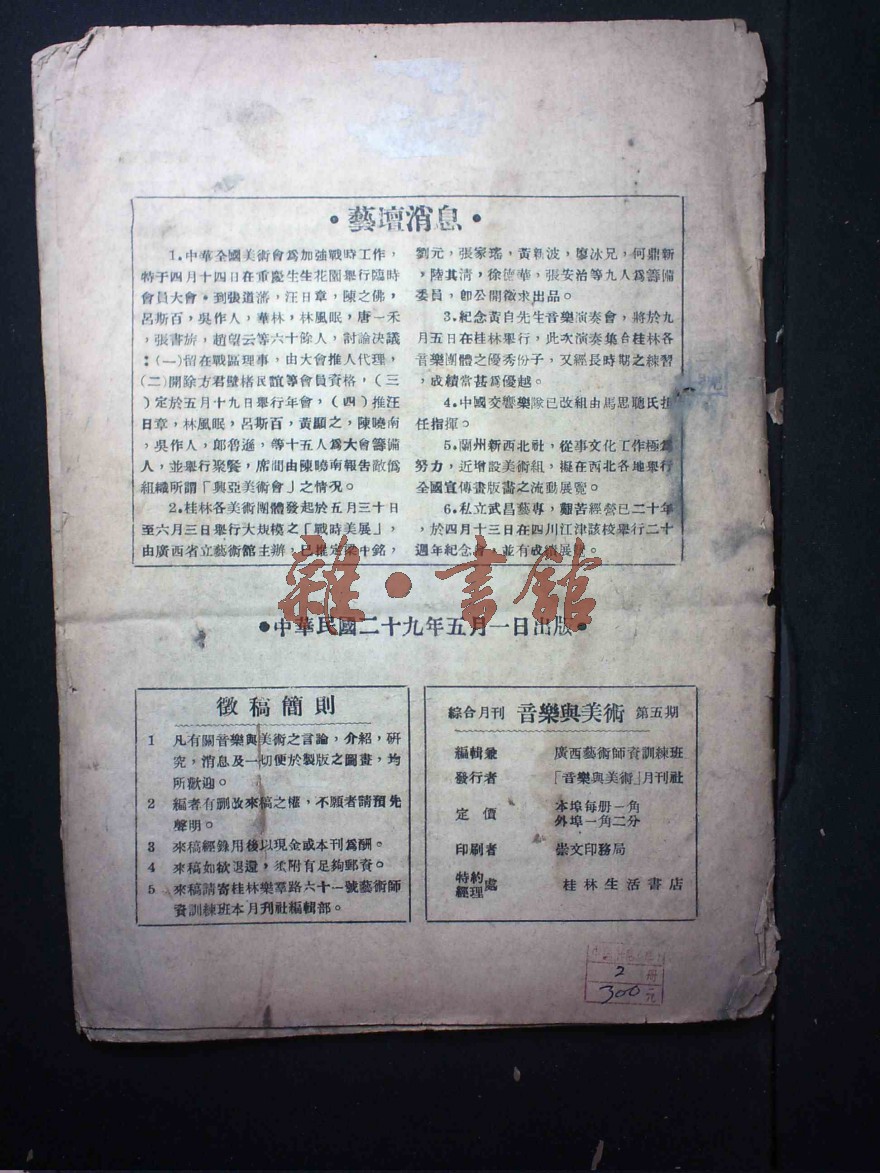 •藝壇消息•
1.中華全國美術會爲加強戰時工作，
特于四月十四日在重慶生生花園舉行臨時
會員大會。到張道藩，汪日章，陳之佛，
呂斯百，吳作人，華林，林風眠，唐一禾
，張書旂，趙望云等六十餘人，討論決議
：（一）留在戰區理事，由大會推人代理，
（二）開除方君璧格民誼等會員資格，（三
）定於五月十九日舉行年會，（四）推汪
日章，林風眠，呂斯百，黃顯之，陳曉南
，吳作人，郎魯遜，等十五人爲大會籌備
人，並舉行聚餐，席間由陳曉南報告敵僞
組織所謂「興亞美術會」之情况。
2.桂林各美術團體發起於五月三十日
至六月三日舉行大規模之「戰時美展」，
由廣西省立藝術館主辦，已推定梁中銘，
劉元，張家瑤，黃新波，廖冰兄，何鼎新
，陸其清，徐德華，張安治等九人爲籌備
委員，卽公開徵求出品。
3.紀念黃自先生音樂演奏會，將於九
月五日在桂林舉行，此次演奏集合桂林各
音樂團體之優秀份子，又經長時期之練習
，成績當甚爲優越。
4.中國交響樂隊已改組由馬思聰氏担
任指揮。
5.蘭州新西北社，從事文化工作極爲
努力，近增設美術組，擬在西北各地舉行
全國宣傳畫版畫之流動展覽。
6.私立武昌藝專，艱苦經營已二十年
，於四月十三日在四川江津該校舉行二十
週年紀念會，並有成績展覽。
雜•書館
•中華民國二十九年五月一日出版•
徵稿簡則
1 凡有關音樂與美術之言論，介紹，研
究，消息及一切便於製版之圖畫，均
所歡迎。
2 編者有刪改來稿之權，不願者請預先
聲明。
3 來稿經錄用後以現金或本刊爲酬。
4 來稿如欲退還，須附有足夠郵資。
5 來稿請寄桂林樂羣路六十一號藝術師
資訓練班本月刊社編輯部。
綜合月刊 音樂與美術 第五期
編輯兼 廣西藝術師資訓練班
發行者 「音樂與美術」月刊社
定價 本埠每册一角
外埠一角二分
印刷者 崇文印務局
特約經理處 桂林生活書店
2 册
300元